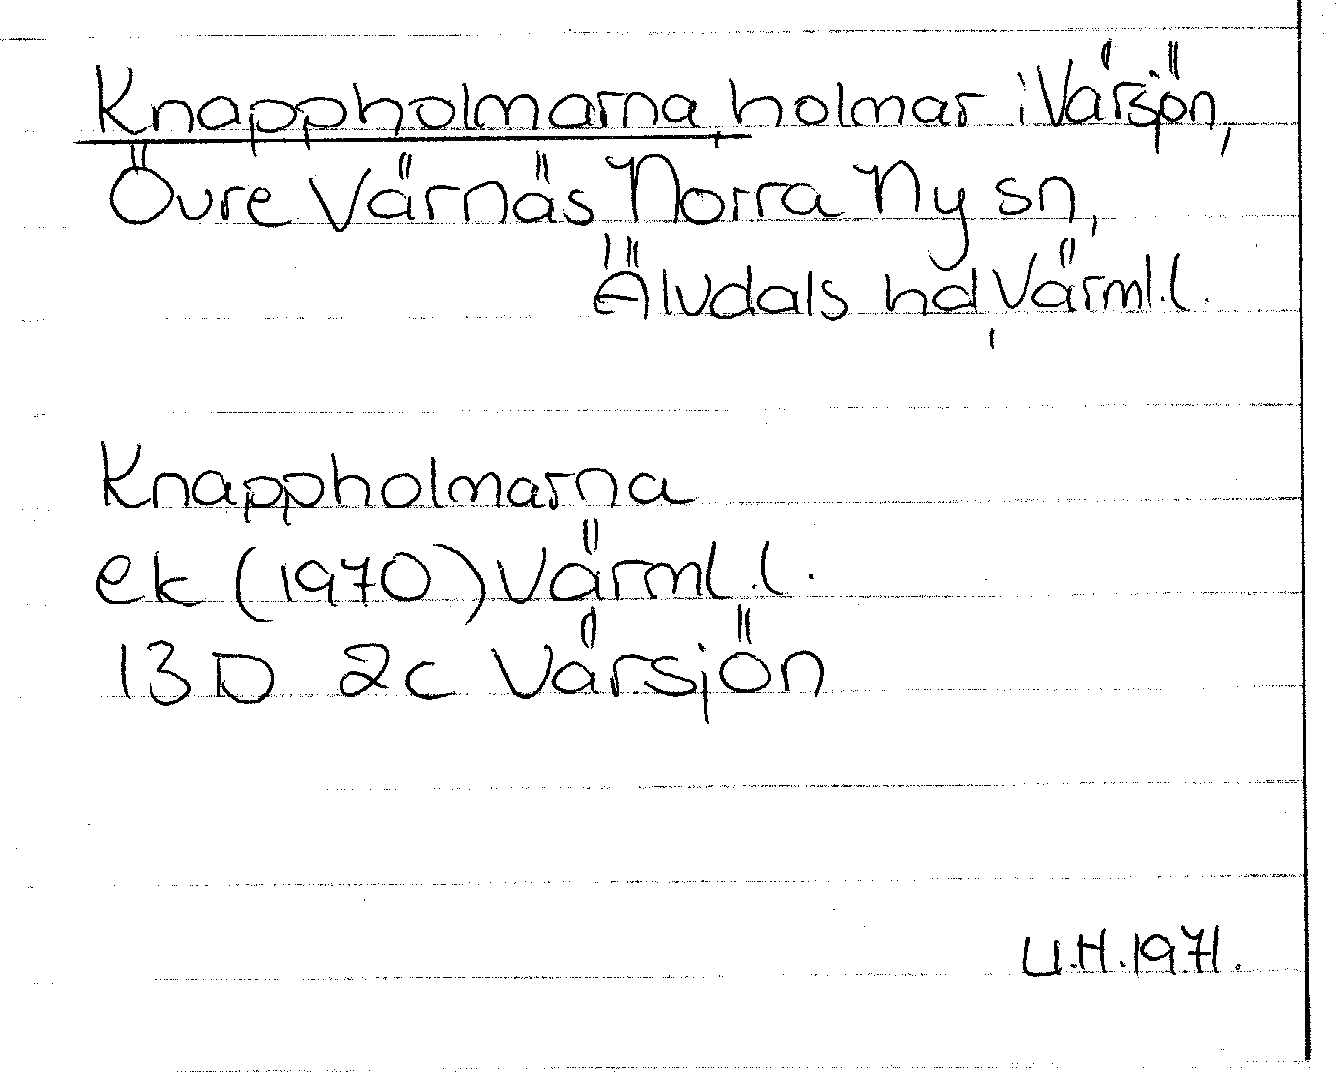 Knappholmarna, holmar i Värsjön,
Övre Värnäs Norra Ny sn,
Älvdals hd, Värml. l.
Knappholmarna
ek (1970) Värml. l.
13 D 2c Värsjön
U.H. 1971.